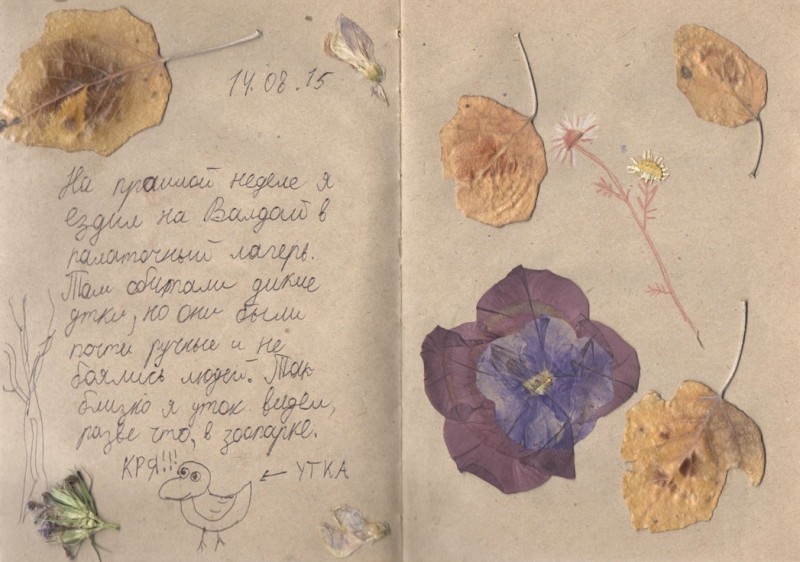 14.08.15
На прошлой неделе я
ездил на Валдай в
палаточный лагерь.
Там обитали дикие
утки, но они были
почти ручные и не
боялись людей. Так
близко я уток видел,
разве что, в зоопарке.
КРЯ!!!
← УТКА